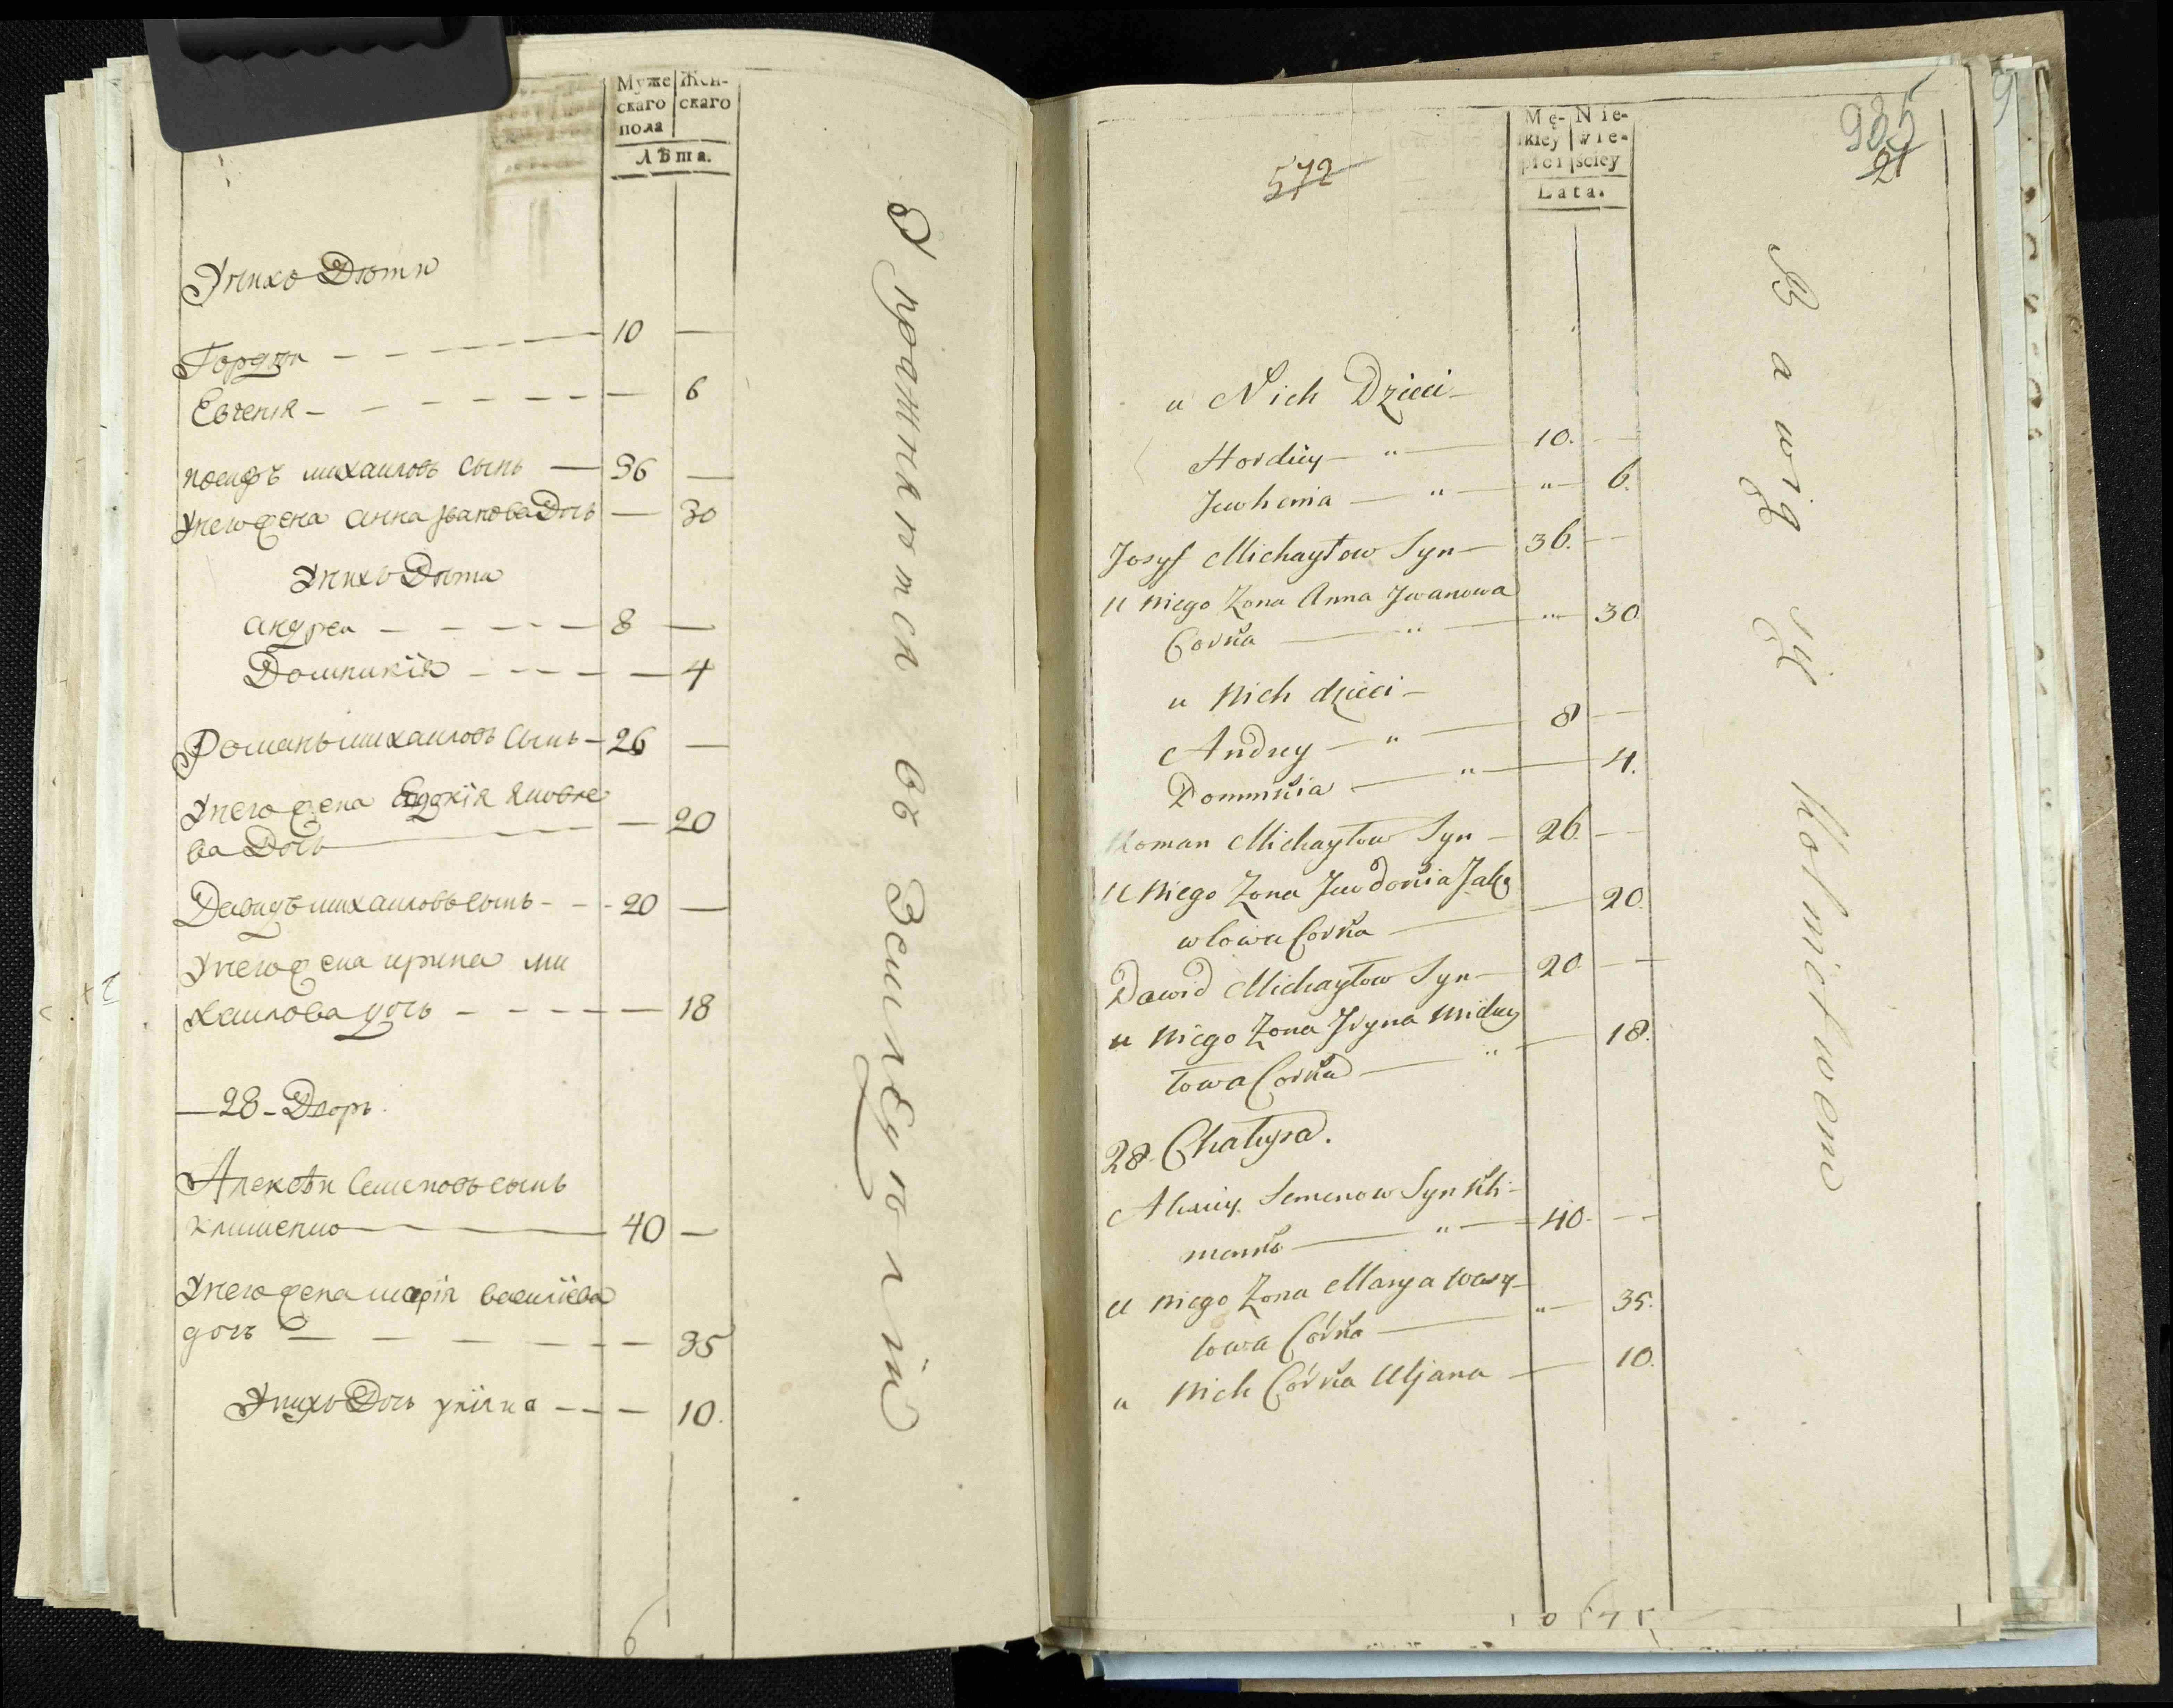 Муже Жен-
скаго скаго
пола
Лѣта.
Унихъ Дѣти
Гордѣй 10
Евгенія 6
иосифъ михаиловъ сынъ 36
Унего жена анна ѵванова Дочь 30
Унихъ Дѣти
андреи 8
Домникія 4
Романъ михаиловъ сынъ 26
Унего жена Евдокія яковле
ва Дочь 20
Давидъ михаиловъ сынъ 20
Унего жена ирина ми
хаилова дочь 18
28 - Дворъ.
Алексѣи Семеновъ сынъ
клименко 40
Унего жена марія василіева
дочь 35
Унихъ Дочь уліяна 10.
Упражняются въ Земледѣліи
6
572
985
21
Mę- Nie-
skiey wie-
płci sciey
Lata.
u Nich Dzieci
Hordiey " 10.
Jewhenia " " 6.
Josyf Michayłow Syn 36.
U niego Zona Anna Jwanowa
Corka " " 30.
u Nich dzieci
Andrey " 8
Domnikia " 4.
Roman Michayłow Syn 26.
U Niego Zona Jewdokia Jako
wlowa Corka 20.
Dawid Michayłow Syn 20.
u Niego Zona Jryna Michay
łowa Corka " 18.
28. Chałupa.
Alexiey Semenow Syn Kli-
menko " 40.
U niego Zona Marya Wasy-
lowa Córka " 35.
u Nich Córka Uljana 10.
Bawią się Rolnictwem